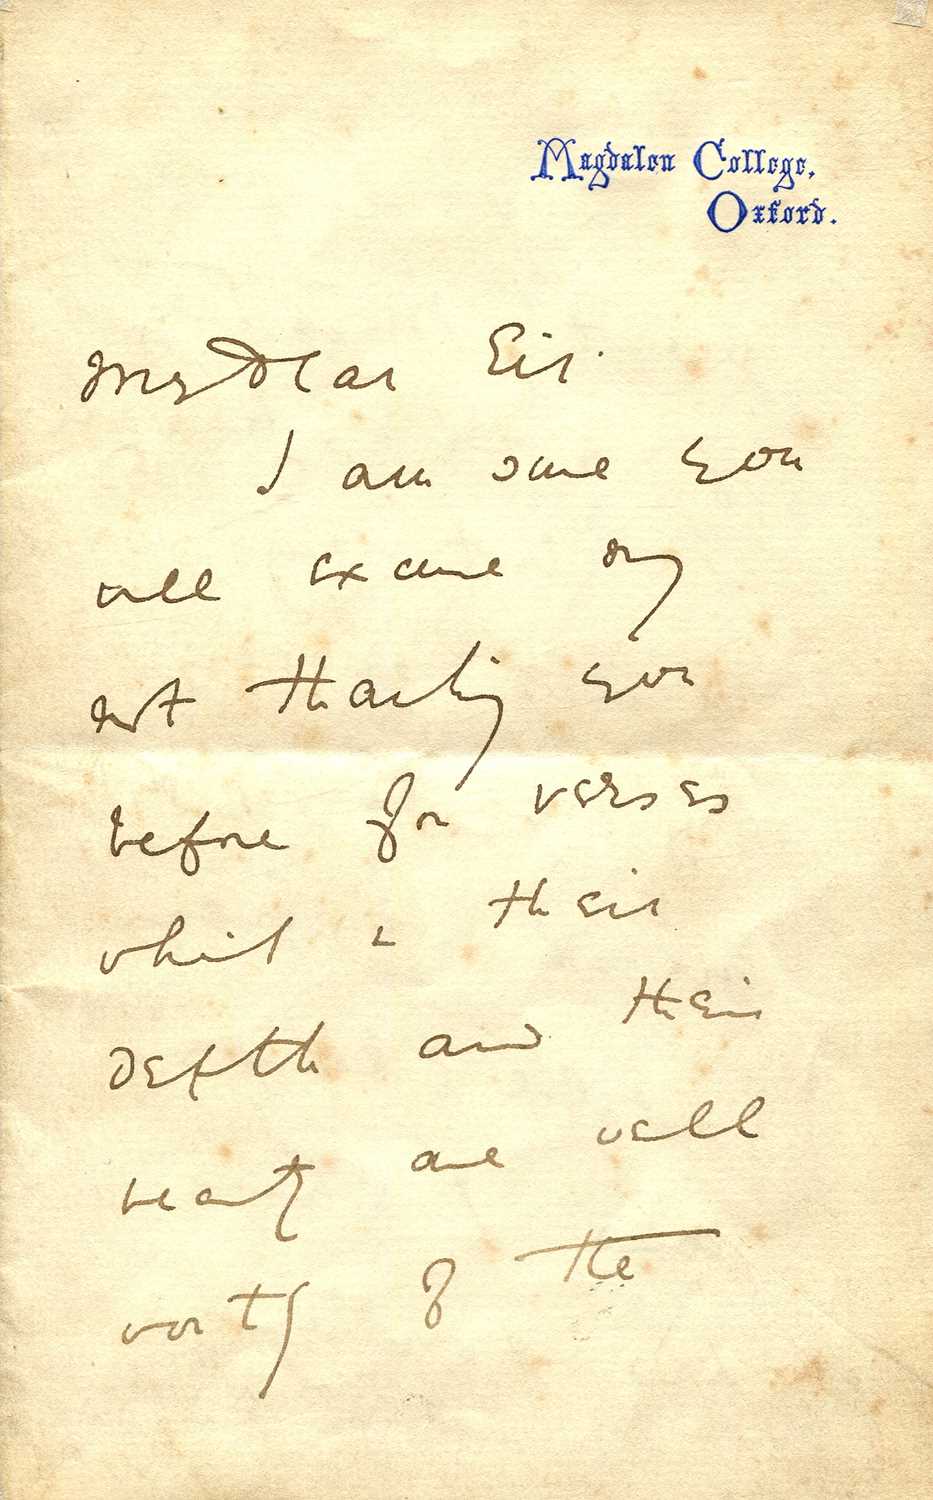 Magdalen College,
Oxford.
My Dear Sir.
I am sure you
will excuse my
not thanking you
before for verses
which in their
depth and their
beauty are well
worthy of the